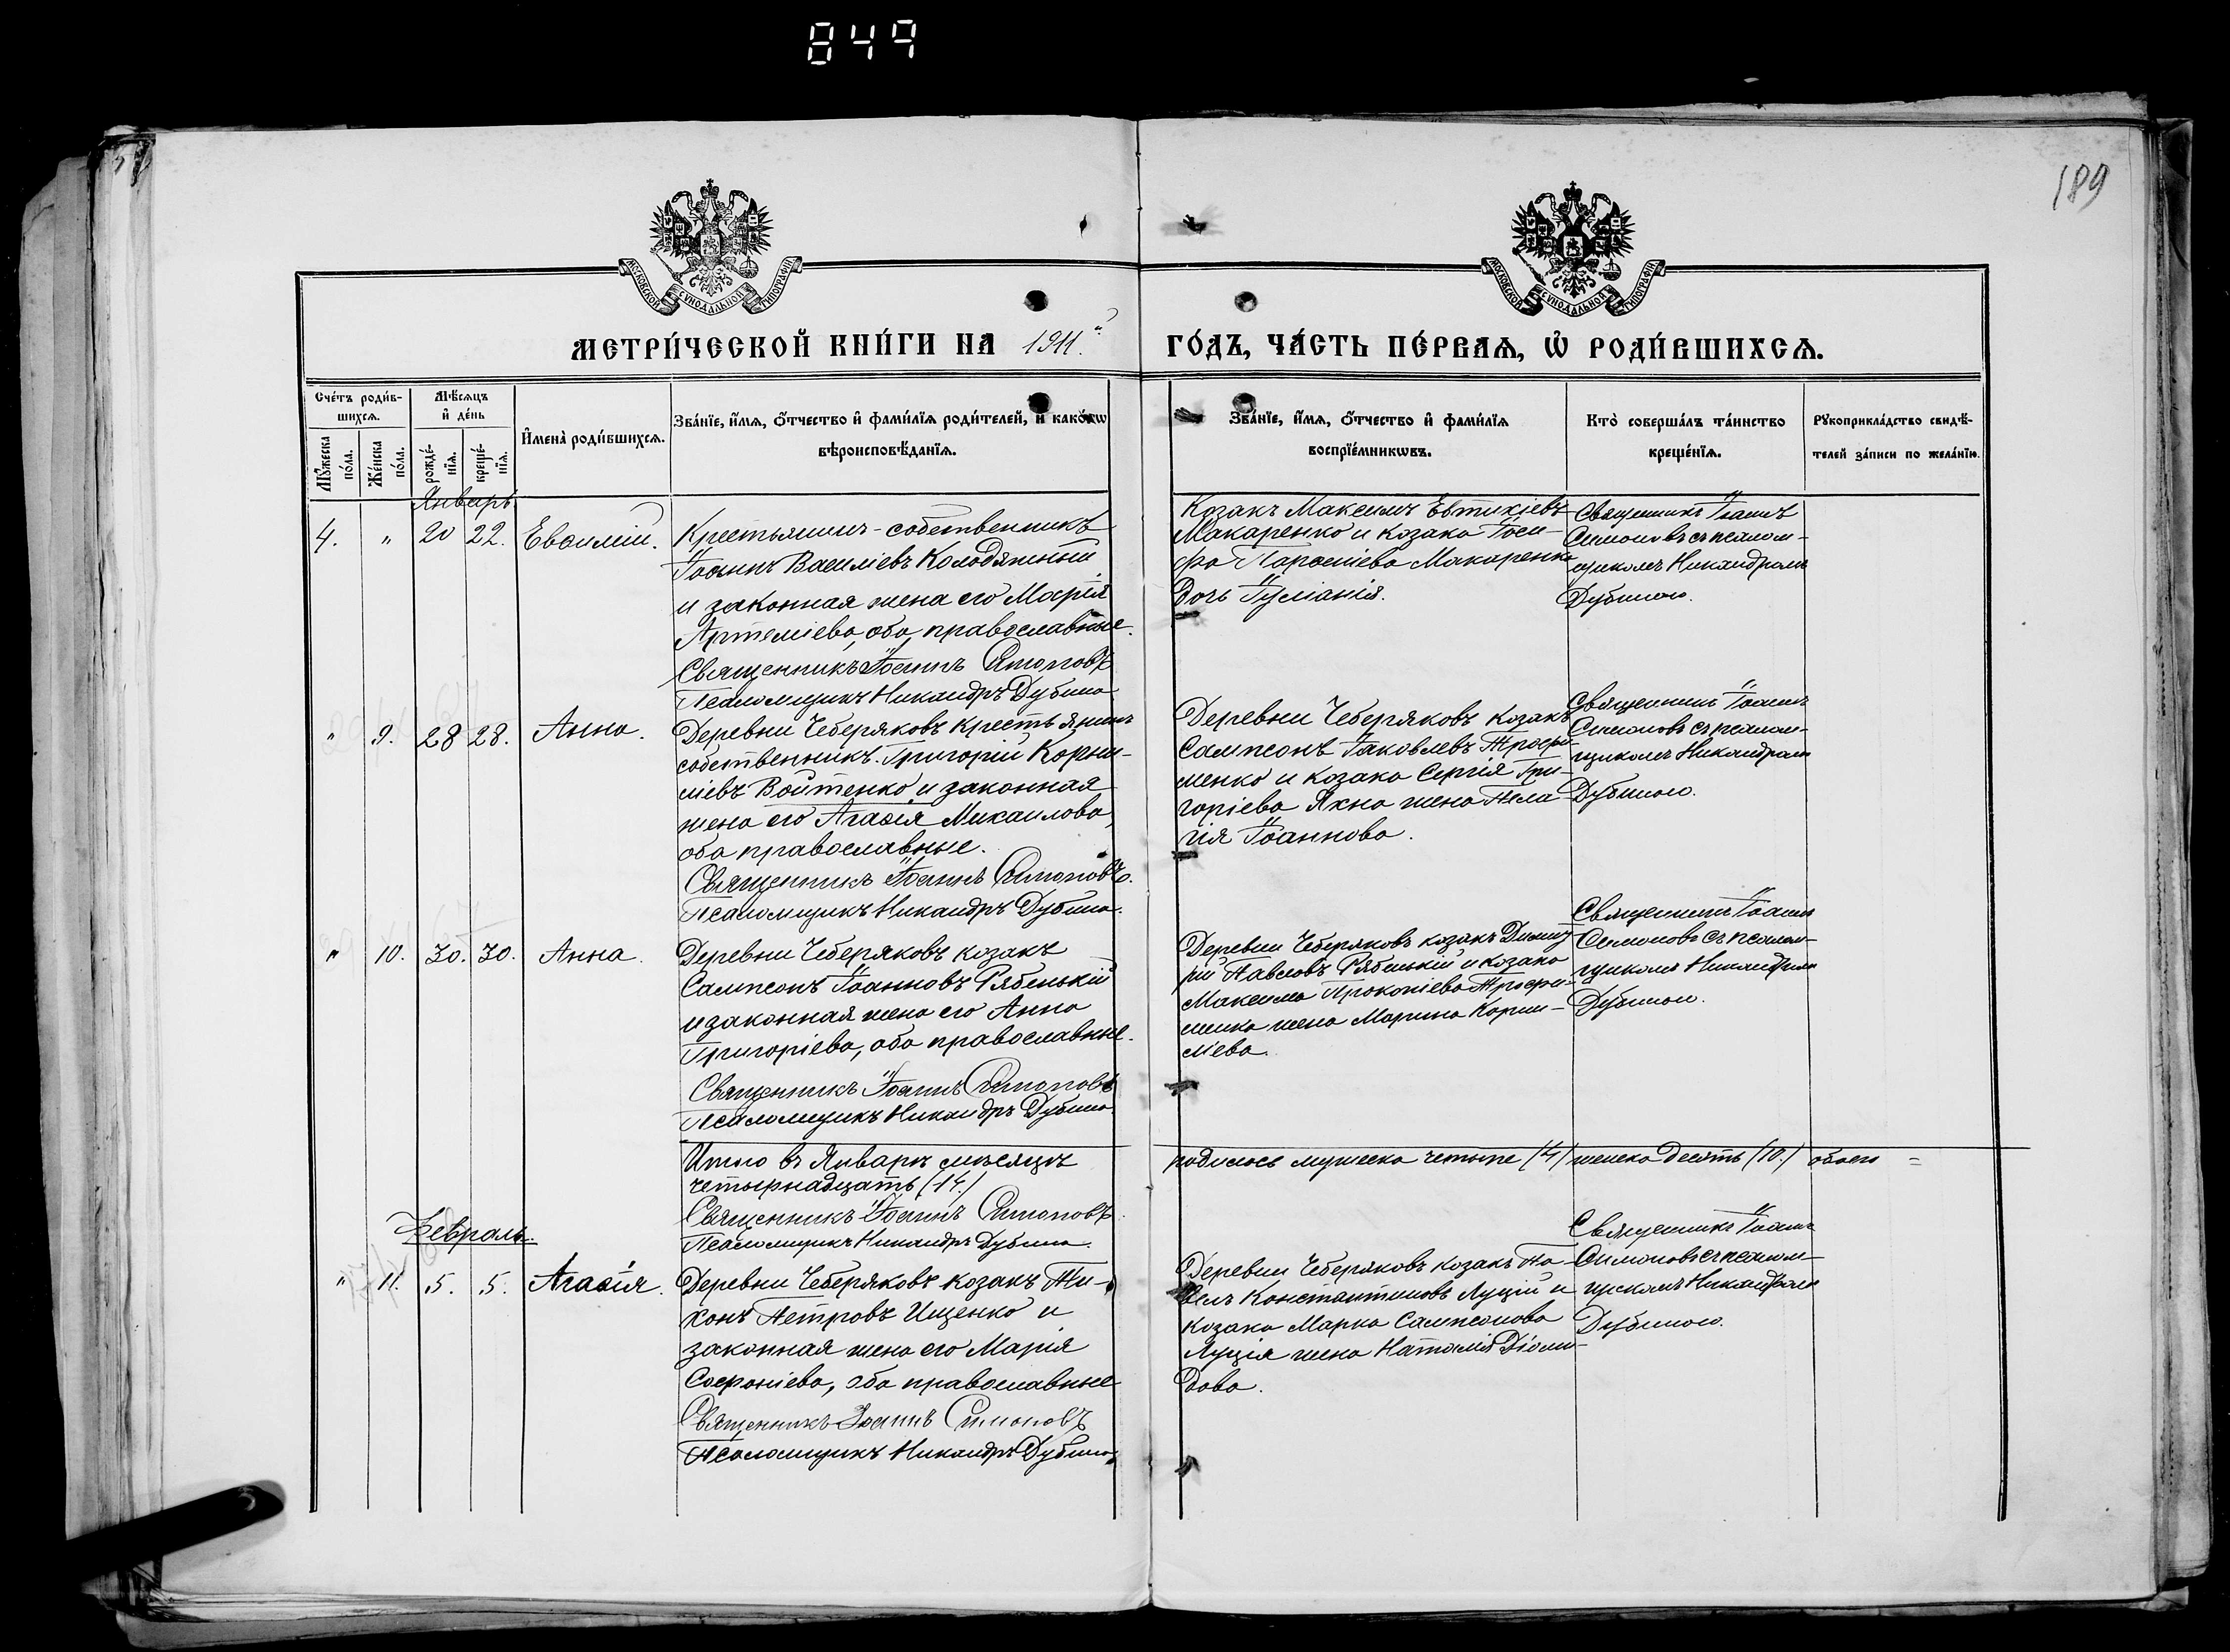 849
189
МОСКОВСКОЙ СѴНОДАЛЬНОЙ ТИПОГРАФІИ
МОСКОВСКОЙ СѴНОДАЛЬНОЙ ТИПОГРАФІИ
МЕТРИ́ЧЕСКОЙ КНИ́ГИ НА 1911.й ГО́ДЪ, ЧА́СТЬ ПЕ́РВАѦ, Ѡ РОДИ́ВШИХСѦ.
Сче́тъ роди́в-
шихсѧ.
Мꙋ́жеска по́ла.
Же́нска по́ла.
Мѣ́сѧцъ
и҆ де́нь
рожде́-
нїѧ.
креще́-
нїѧ.
И҆мена̀ роди́вшихсѧ.
Зва́нїе, и҆́мѧ, ѻ҆́тчество и҆ фами́лїѧ роди́телей, и҆ како́гѡ
вѣроисповѣ́данїѧ.
Зва́нїе, и҆́мѧ, ѻ҆́тчество и҆ фами́лїѧ
воспрїе́мникѡвъ.
Кто̀ соверша́лъ та́инство
креще́нїѧ.
Рꙋкоприкла́дство свидѣ́-
телей за́писи по жела́нїю.
Январь
4. " 20 22. Евѳимій.
Крестьянинъ-собственникъ
Іоаннъ Василіевъ Колодяжный
и законная жена его Марія
Артеміева, оба православные.
Священникъ Іоаннъ Симоновъ
Псаломщикъ Никандръ Дубина
Козакъ Максимъ Евтихіевъ
Макаренко и козака Іоси-
фа Парѳеніева Макаренка
дочь Іуліанія.
Священникъ Іоаннъ
Симоновъ съ псалом-
щикомъ Никандромъ
Дубиною.
" 9. 28 28. Анна.
Деревни Чеберяковъ крестьянинъ
собственникъ Григорій Корни-
ліевъ Войтенко и законная
жена его Агаѳія Михаилова,
оба православные.
Священникъ Іоаннъ Симоновъ.
Псаломщикъ Никандръ Дубина.
Деревни Чеберяковъ козакъ
Сампсонъ Іаковлевъ Трофи-
менко и козака Сергія Гри-
горіева Якна жена Пела-
гія Іоаннова.
Священникъ Іоаннъ
Симоновъ съ псалом-
щикомъ Никандромъ
Дубиною.
" 10. 30. 30. Анна.
Деревни Чеберяковъ козакъ
Сампсонъ Іоанновъ Рябенькій
и законная жена его Анна
Григоріева, оба православные.
Священникъ Іоаннъ Симоновъ
Псаломщикъ Никандръ Дубина
Деревни Чеберяковъ козакъ Димит-
рій Павловъ Рябенькій и козака
Максима Прокопіева Трофи-
менка жена Марина Корни-
ліева.
Священникъ Іоаннъ
Симоновъ съ псалом-
щикомъ Никандромъ
Дубиною.
Итого въ Январѣ мѣсяцѣ родилось мужеска четыре /4/ женска десять /10./ обоего =
четырнадцать /14./
Священникъ Іоаннъ Симоновъ.
Псаломщикъ Никандръ Дубина.
Февраль.
" 11. 5. 5. Агаѳія.
Деревни Чеберяковъ козакъ Ти-
хонъ Петровъ Ищенко и
законная жена его Марія
Софроніева, оба православные
Священникъ Іоаннъ Симоновъ
Псаломщикъ Никандръ Дубина
Деревни Чеберяковъ козакъ Па-
велъ Константиновъ Луцій и
козака Марка Сампсонова
Луція жена Наталія Діоми-
дова.
Священникъ Іоаннъ
Симоновъ съ псалом-
щикомъ Никандромъ
Дубиною.